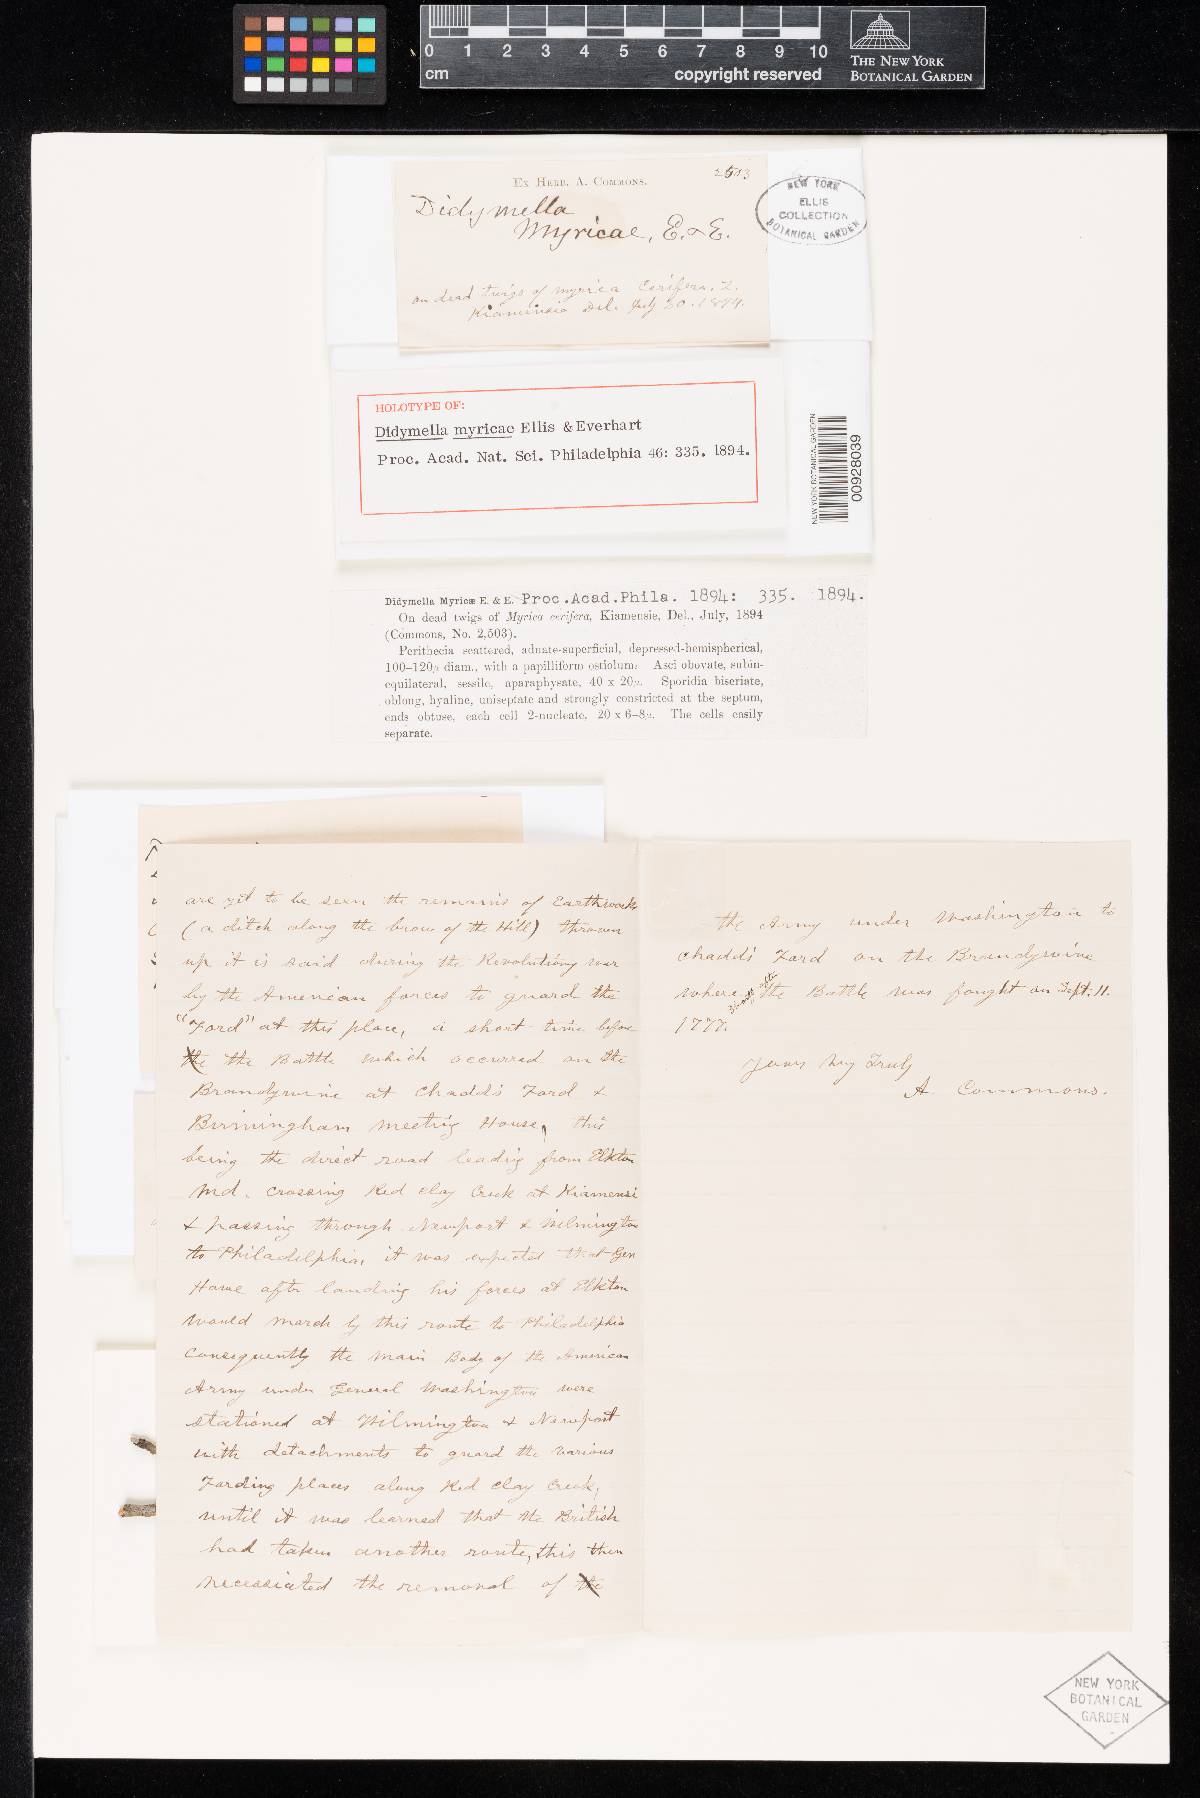 0 1 2 3 4 5 6 7 8 9 10
cm
copyright reserved
THE NEW YORK
BOTANICAL GARDEN
EX HERB. A. COMMONS.
2503
Didymella
Myricae, E. & E.
on dead twigs of Myrica Cerifera. L.
Kiamensie Del. July 20. 1894.
NEW YORK
ELLIS
COLLECTION
BOTANICAL GARDEN
HOLOTYPE OF:
Didymella myricae Ellis & Everhart
Proc. Acad. Nat. Sci. Philadelphia 46: 335. 1894.
NEW YORK BOTANICAL GARDEN
00928039
Didymella Myricæ E. & E. Proc.Acad.Phila. 1894: 335. 1894.
On dead twigs of Myrica cerifera, Kiamensie, Del., July, 1894
(Commons, No. 2,503).
Perithecia scattered, adnate-superficial, depressed-hemispherical,
100–120µ diam., with a papilliform ostiolum. Asci obovate, subin-
equilateral, sessile, aparaphysate, 40 x 20µ. Sporidia biseriate,
oblong, hyaline, uniseptate and strongly constricted at the septum,
ends obtuse, each cell 2-nucleate, 20 x 6–8µ. The cells easily
separate.
are yet to be seen the remains of Earthworks
(a ditch along the brow of the Hill) thrown
up it is said during the Revolutiony war
by the American forces to guard the
"Ford" at this place, a short time before
the the Battle which occurred on the
Brandywine at Chadd's Ford &
Birmingham Meeting House, this
being the direct road leading from Elkton
Md. crossing Red Clay Creek at Kiamensi
& passing through Newport & Wilmington
to Philadelphia, it was expected that Gen
Howe after landing his forces at Elkton
would march by this route to Philadelphia
Consequently the Main Body of the American
Army under General Washington were
stationed at Wilmington & Newport
with detachments to guard the various
Fording places along Red Clay Creek,
until it was learned that the British
had taken another route, this then
necessiated the removal of the
the Army under Washington to
Chadd's Ford on the Brandywine
where the Battle was fought on Sept. 11.
1777.
Yours Very Truly
A. Commons.
NEW YORK
BOTANICAL
GARDEN